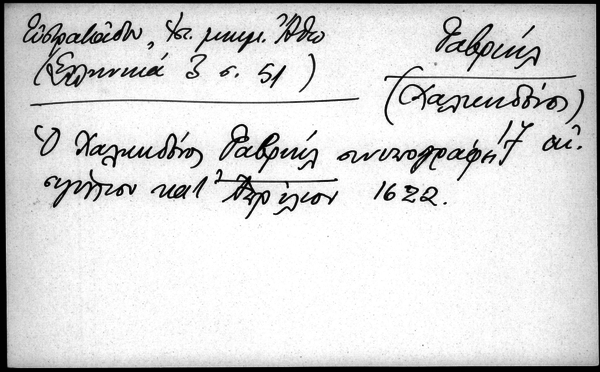 Εὐστρατιάδου, Ἱστ. μνημ. Ἄθω
(Ἑλληνικά 3 σ. 51)
Γαβριήλ
(Χαλκηδόνος)
Ὁ Χαλκηδόνος Γαβριήλ συνυπογράφει 17 αἰ.
κατ' Ἀπρίλιον 1622.